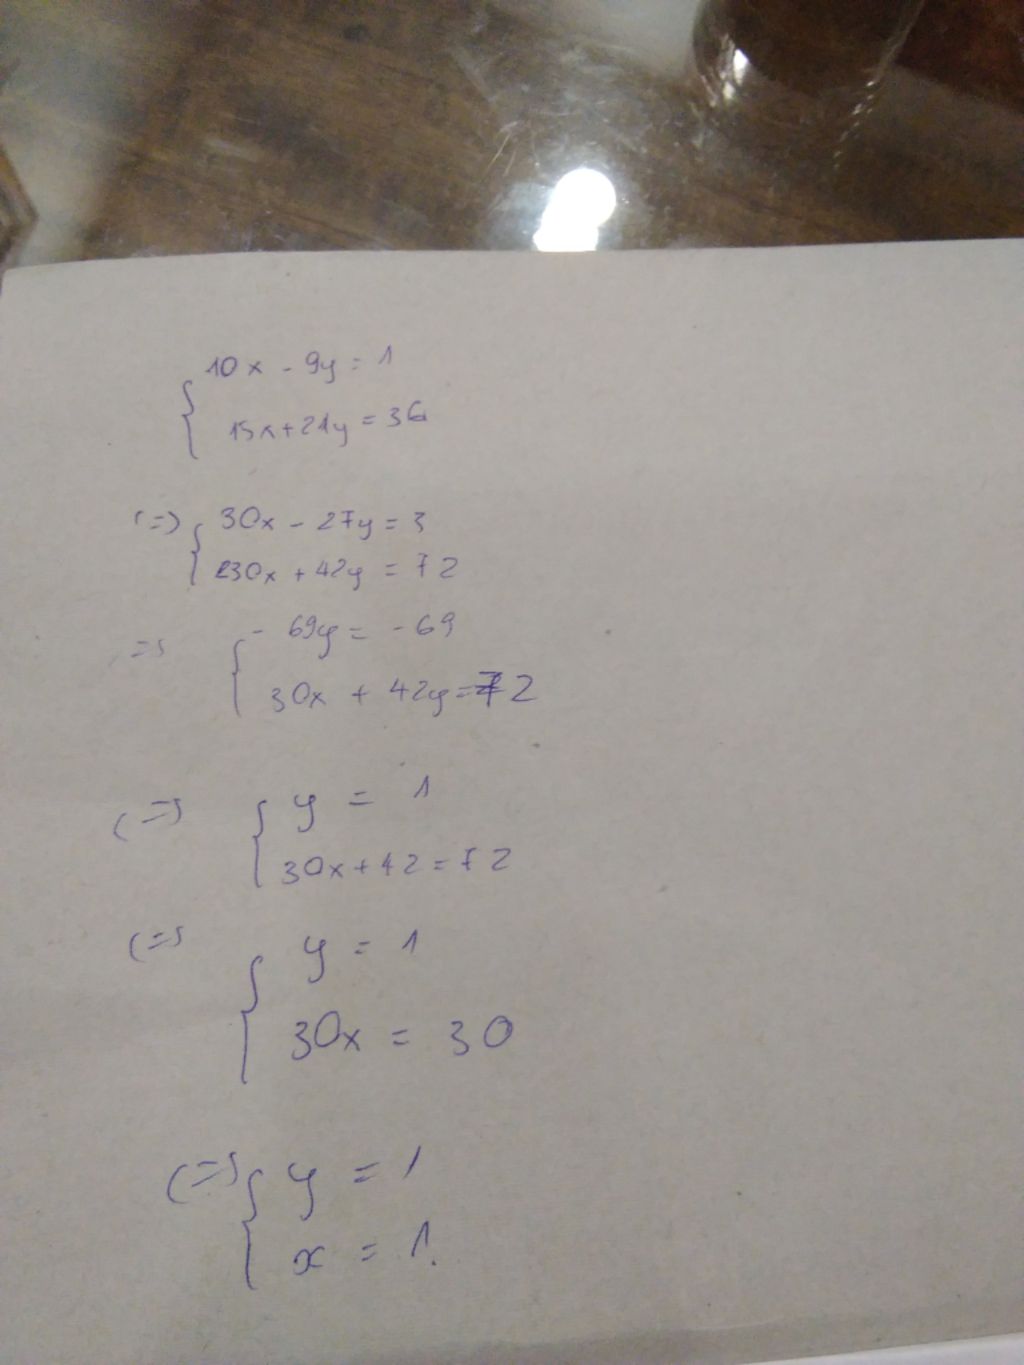 10x - 9y = 1
15x + 21y = 36
(=) 30x - 27y = 3
30x + 42y = 72
=) - 69y = - 69
30x + 42y = 72
(=) y = 1
30x + 42 = 72
(=) y = 1
30x = 30
(=) y = 1
x = 1.